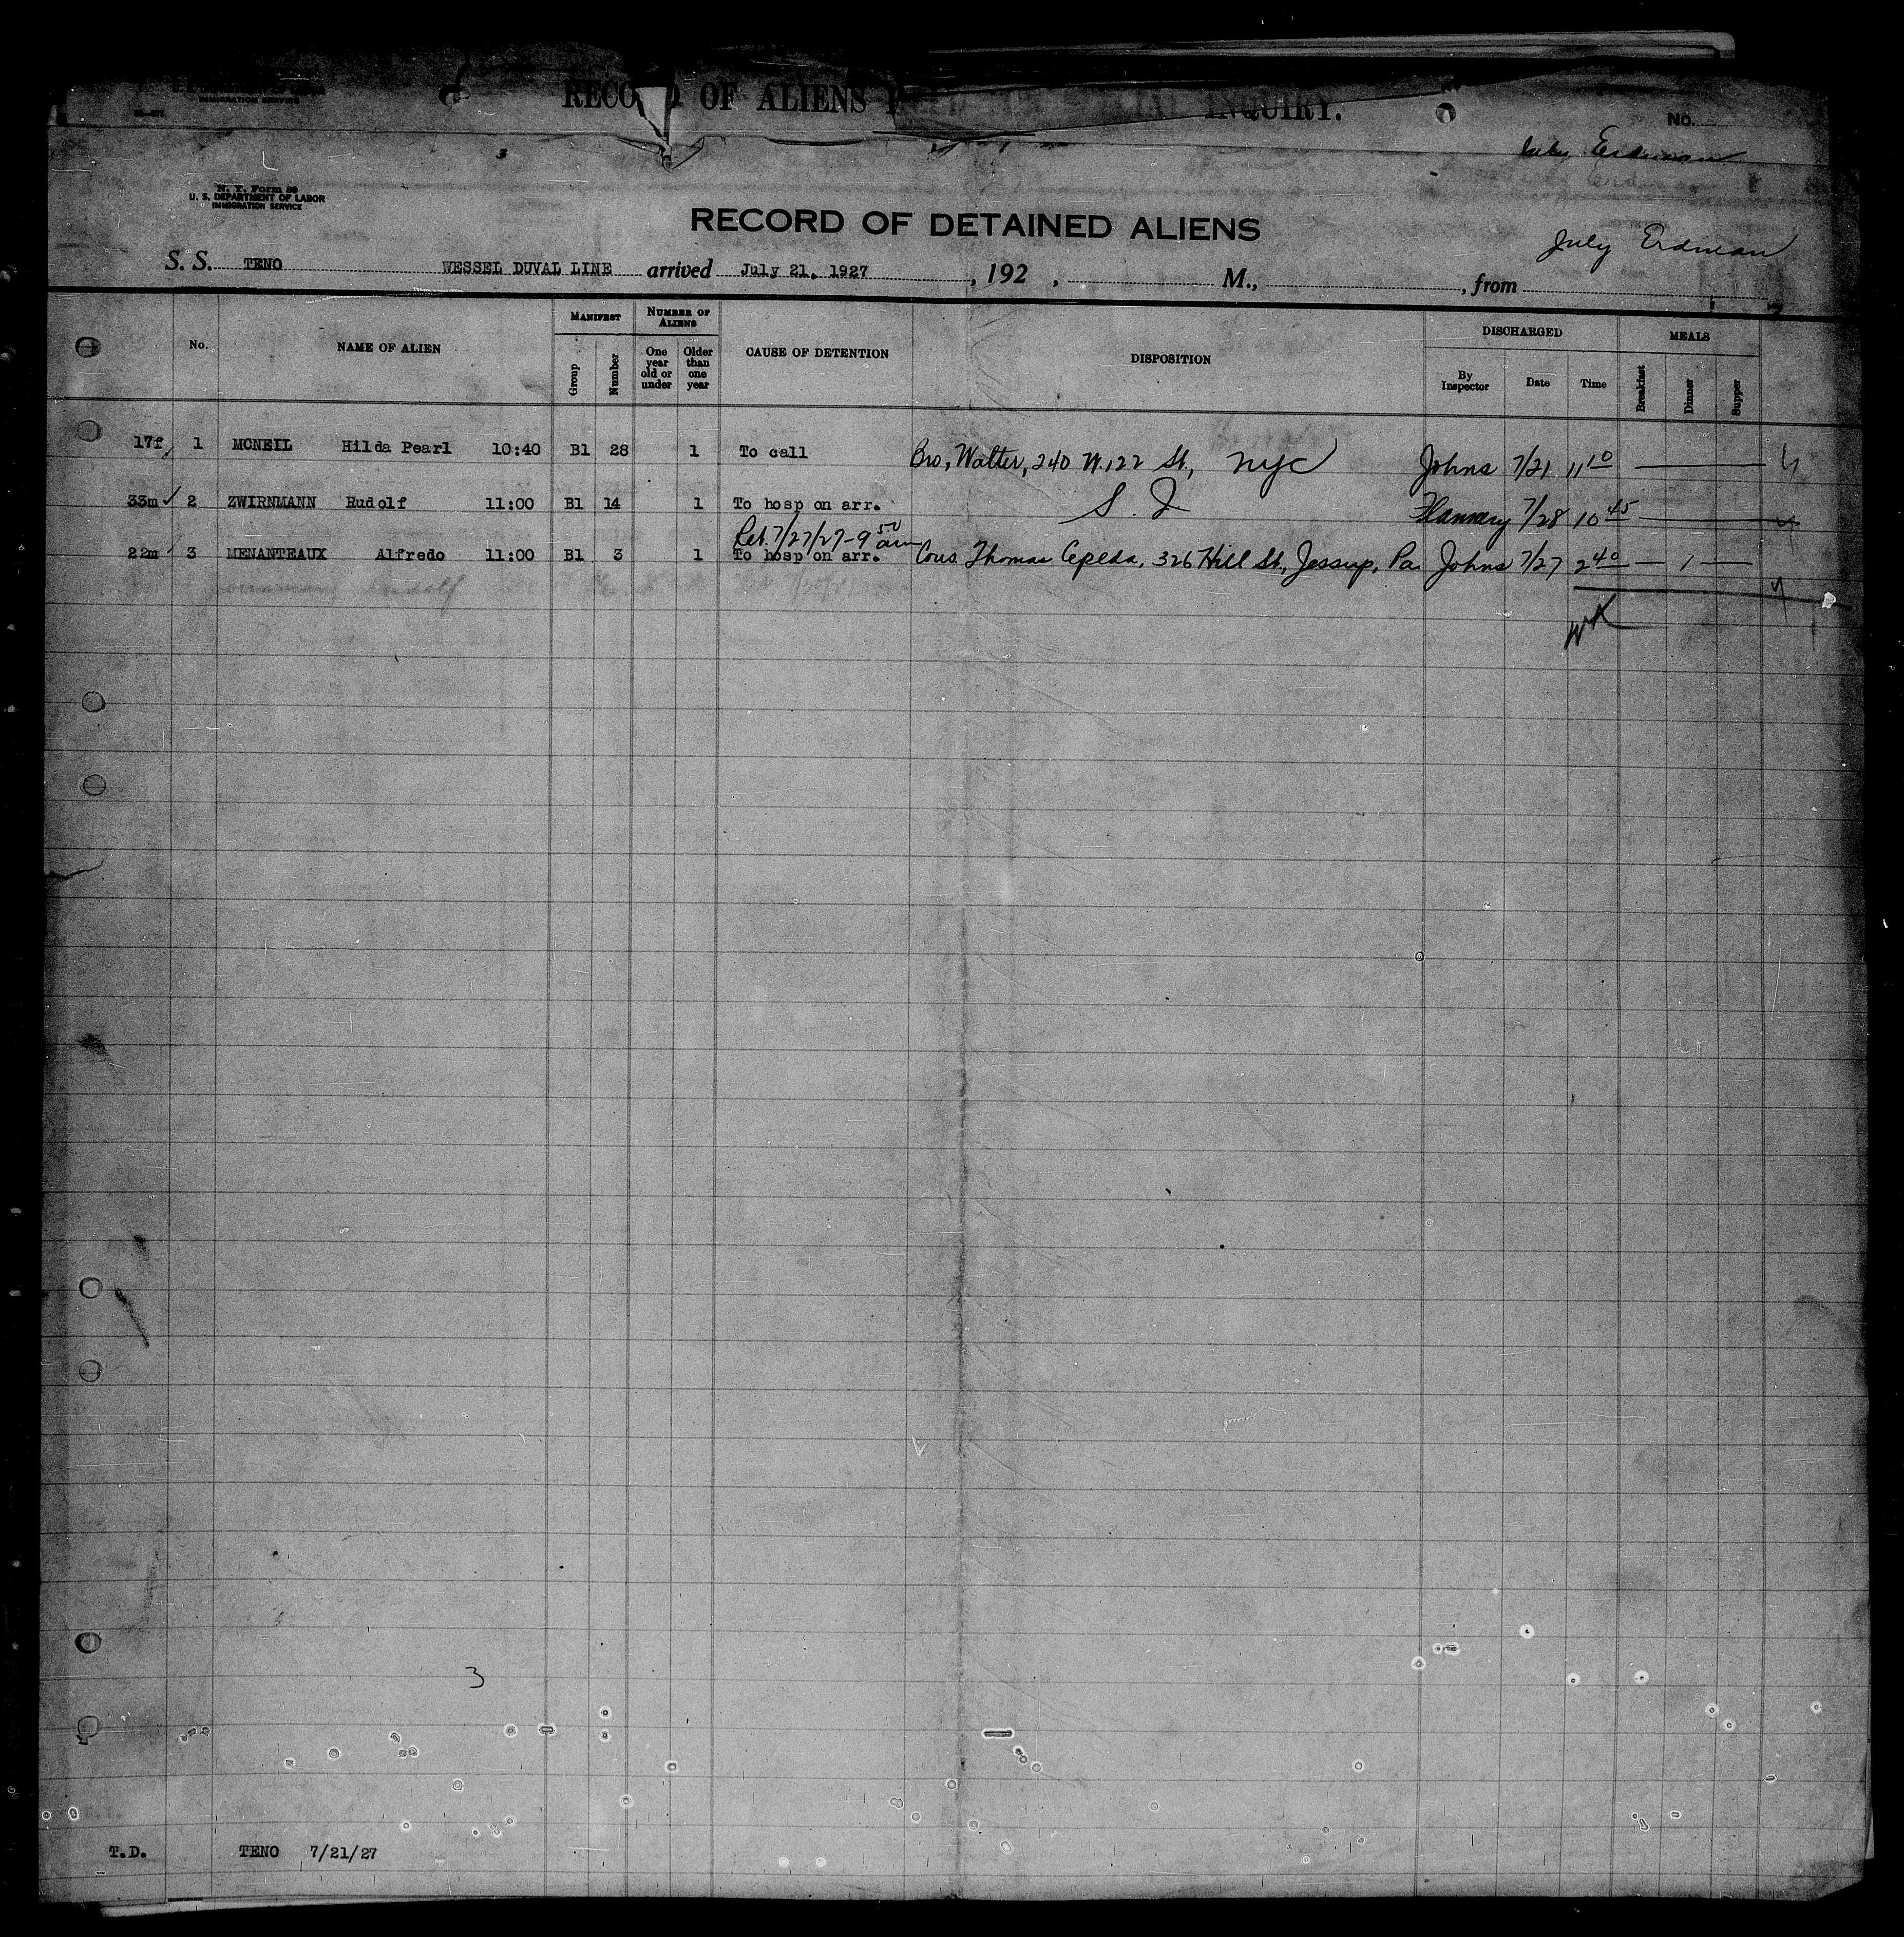 IMMIGRATION SERVICE
RECORD OF ALIENS INQUIRY.
No.
July Erdman
N. Y. Form 89
U. S. DEPARTMENT OF LABOR
IMMIGRATION SERVICE
RECORD OF DETAINED ALIENS
July Erdman
S. S. TENO WESSEL DUVAL LINE arrived July 21, 1927, 192 , M., , from
No. NAME OF ALIEN MANIFEST Group Number NUMBER OF ALIENS One year old or under Older than one year CAUSE OF DETENTION DISPOSITION DISCHARGED By Inspector Date Time MEALS Breakfast Dinner Supper
17f 1 MCNEIL Hilda Pearl 10:40 B1 28 1 To call Bro, Walter, 240 W. 122 St., NYC Johns 7/21 11 10
33m ✓ 2 ZWIRNMANN Rudolf 11:00 B1 14 1 To hosp on arr. S. I. Flannery 7/28 10 45
Ret. 7/27/27-9 50 am
22m 3 MENANTEAUX Alfredo 11:00 B1 3 1 To hosp on arr. Cous. Thomas Cepeda, 326 Hill St., Jessup, Pa. Johns 7/27 2 40 — 1 —
WK
3
T.D. TENO 7/21/27